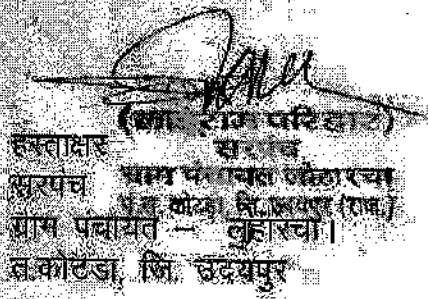 राम परिहार)
हस्ताक्षर सरपंच
सरपंच ग्राम पंचायत लोहारचा
पं.स. कोटडा जि. उदयपुर (राज.)
ग्राम पंचायत – लुहारचा।
त.कोटडा, जि. उदयपुर